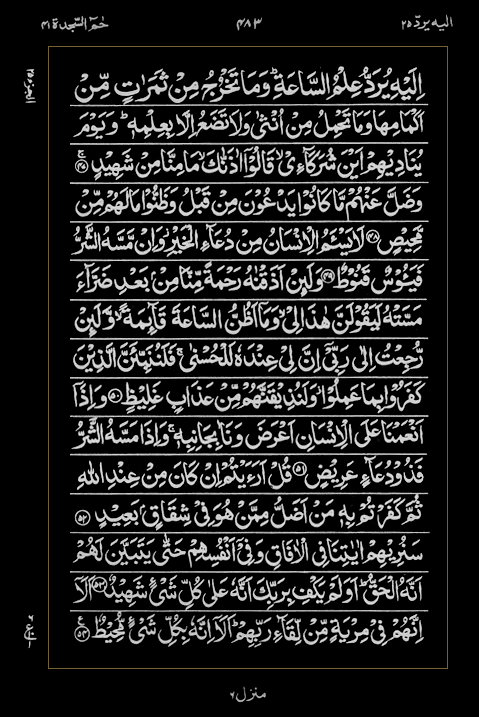 اليه يردّ ٢٥ ۴۸۳ حٰمٓ السّجدة ۴۱
الجزء ٢٥
اِلَيْهِ يُرَدُّ عِلْمُ السَّاعَةِ ؕ وَمَا تَخْرُجُ مِنْ ثَمَرٰتٍ مِّنْ
اَكْمَامِهَا وَمَا تَحْمِلُ مِنْ اُنْثٰى وَلَا تَضَعُ اِلَّا بِعِلْمِهٖ ؕ وَيَوْمَ
يُنَادِيْهِمْ اَيْنَ شُرَكَآءِىْ ۙ قَالُوْۤا اٰذَنّٰكَ ۙ مَا مِنَّا مِنْ شَهِيْدٍ ۚ‏﴿۴۷﴾
وَضَلَّ عَنْهُمْ مَّا كَانُوْا يَدْعُوْنَ مِنْ قَبْلُ وَظَنُّوْا مَا لَهُمْ مِّنْ
مَّحِيْصٍ ﴿۴۸﴾ لَا يَسْـَٔمُ الْاِنْسَانُ مِنْ دُعَآءِ الْخَيْرِ ؗ وَاِنْ مَّسَّهُ الشَّرُّ
فَيَـُٔوْسٌ قَنُوْطٌ ﴿۴۹﴾ وَلَئِنْ اَذَقْنٰهُ رَحْمَةً مِّنَّا مِنْۢ بَعْدِ ضَرَّآءَ
مَسَّتْهُ لَيَقُوْلَنَّ هٰذَا لِىْ ۙ وَمَاۤ اَظُنُّ السَّاعَةَ قَآئِمَةً ۙ وَّلَئِنْ
رُّجِعْتُ اِلٰى رَبِّىْۤ اِنَّ لِىْ عِنْدَهٗ لَلْحُسْنٰى ۚ فَلَنُنَبِّئَنَّ الَّذِيْنَ
كَفَرُوْا بِمَا عَمِلُوْا ؗ وَلَنُذِيْقَنَّهُمْ مِّنْ عَذَابٍ غَلِيْظٍ ﴿۵۰﴾ وَاِذَاۤ
اَنْعَمْنَا عَلَى الْاِنْسَانِ اَعْرَضَ وَنَاٰ بِجَانِبِهٖ ۚ وَاِذَا مَسَّهُ الشَّرُّ
فَذُوْ دُعَآءٍ عَرِيْضٍ ﴿۵۱﴾ قُلْ اَرَءَيْتُمْ اِنْ كَانَ مِنْ عِنْدِ اللّٰهِ
ثُمَّ كَفَرْتُمْ بِهٖ مَنْ اَضَلُّ مِمَّنْ هُوَ فِىْ شِقَاقٍۭ بَعِيْدٍ ﴿۵۲﴾
سَنُرِيْهِمْ اٰيٰتِنَا فِى الْاٰفَاقِ وَفِىْۤ اَنْفُسِهِمْ حَتّٰى يَتَبَيَّنَ لَهُمْ
اَنَّهُ الْحَقُّ ؕ اَوَلَمْ يَكْفِ بِرَبِّكَ اَنَّهٗ عَلٰى كُلِّ شَىْءٍ شَهِيْدٌ ﴿۵۳﴾ اَلَاۤ
اِنَّهُمْ فِىْ مِرْيَةٍ مِّنْ لِّقَآءِ رَبِّهِمْ ؕ اَلَاۤ اِنَّهٗ بِكُلِّ شَىْءٍ مُّحِيْطٌ ﴿۵۴﴾
منزل ۶